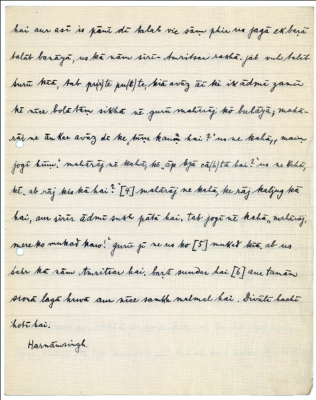 hai aur asī is pānī dē talāb vic sāṃ phir us jagā ek baṛā
talāb banāyā, us kā nām sirī-Amritsar rakhā. jab vuh talāb
purī kiā, tab pu(r)ṭe pu(ṭ)te, kiā avāz āī ki ik ādmī zamīn
kē nīce bōlā tām sikhā nē gurū mahārāj kō bulāyā; mahā-
rāj ne ānkar avāz dē ke „tūm kaun hai?" us ne kahā, „maiṃ
jogī hūṃ". mahārāj nē kahā, ke „āp kyā cā(h)tā hai?" us ne kahā,
kē „ab rāj kis kā hai?" [4] mahārāj ne kahā, ke rāj kaljug kā
hai, aur sirir ādmī sukh pātā hai. tab jogī nē kahā „mahārāj,
mere kō mukat karo!" gurū jī ne us kō [5] mukat kiā, ab us
śahr kā nām Amritsar hai. baṛā sundar hai [6] aur tamām
sōnā lagā huvā aur nīce sambh malmal hai. Divālī hachī
hotī hai.
Harnāmsingh.